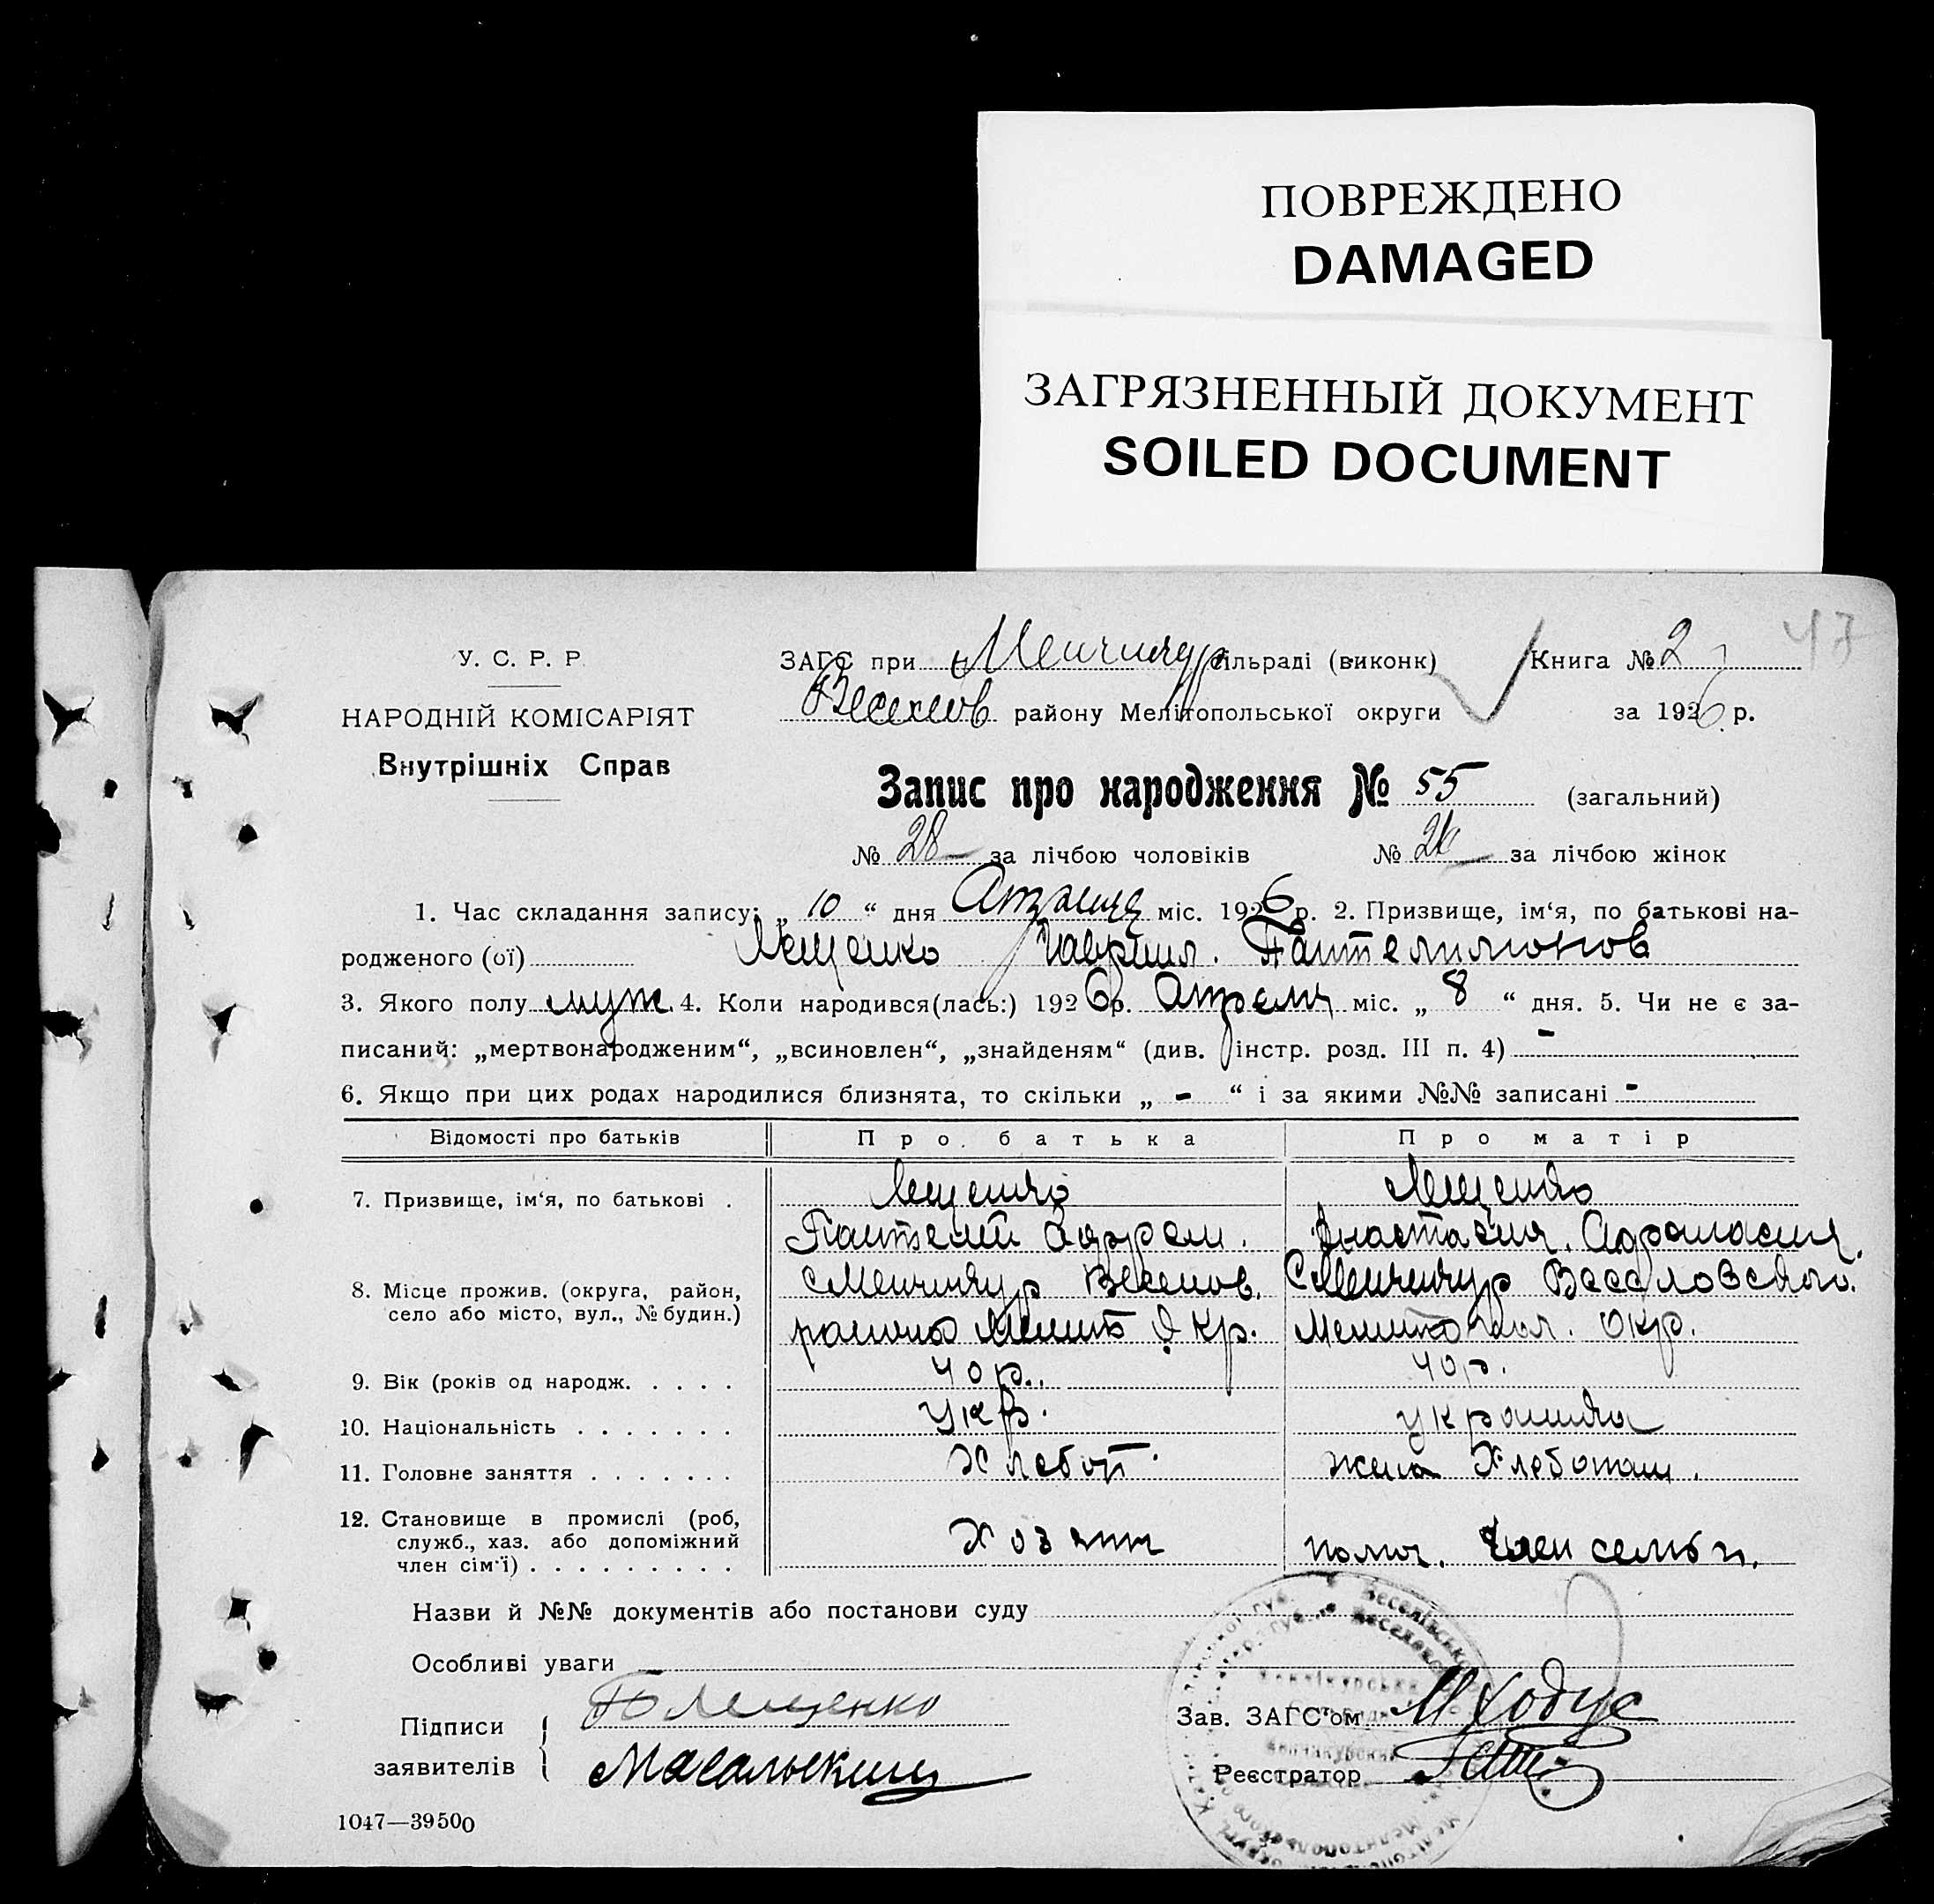 ПОВРЕЖДЕНО
DAMAGED
ЗАГРЯЗНЕННЫЙ ДОКУМЕНТ
SOILED DOCUMENT
47
У. С. Р. Р.
НАРОДНІЙ КОМІСАРІЯТ
Внутрішніх Справ
ЗАГС при Менчикур сільраді (виконк) Книга № 2
Веселов району Мелітопольської округи за 1926 р.
Запис про народження № 55 (загальний)
№ 28 за лічбою чоловіків № за лічбою жінок
1. Час складання запису: „ 10 “ дня Апреля міс. 1926 р. 2. Призвище, ім‘я, по батькові на-
родженого (ої) Лещенко Гавриил. Пантелимонов
3. Якого полу муж. 4. Коли народився(лась:) 1926 р. Апреля міс. „ 8 “ дня. 5. Чи не є за-
писаний: „мертвонародженим“, „всиновлен“, „знайденям“ (див. інстр. розд. III п. 4) -
6. Якщо при цих родах народилися близнята, то скільки „ - “ і за якими №№ записані -
Відомості про батьків Про батька Про матір
7. Призвище, ім‘я, по батькові . Лещенко Лещенко
Пантелей Ефрем. Анастасия. Афанасия.
8. Місце прожив. (округа, район, село або місто, вул., № будин.) с Менчикур Веселов. С Менчикур Веселовского.
района Мелит Окр. Мелитопол. Окр.
9. Вік (років од народж. . . . . 40 р. 40 р.
10. Національність . . . . . . . Укр. украинка
11. Головне заняття . . . . . . . Хлебоп. жена Хлебопаш.
12. Становище в промислі (роб, служб., хаз. або допоміжний член сім‘ї) . . . . . . . . . Хозяин помог. Член семьи.
Назви й №№ документів або постанови суду
Особливі уваги
Підписи заявителів
П Лещенко
Масальский
Зав. ЗАГС‘ом М Ходус
Реєстратор
1047—39500